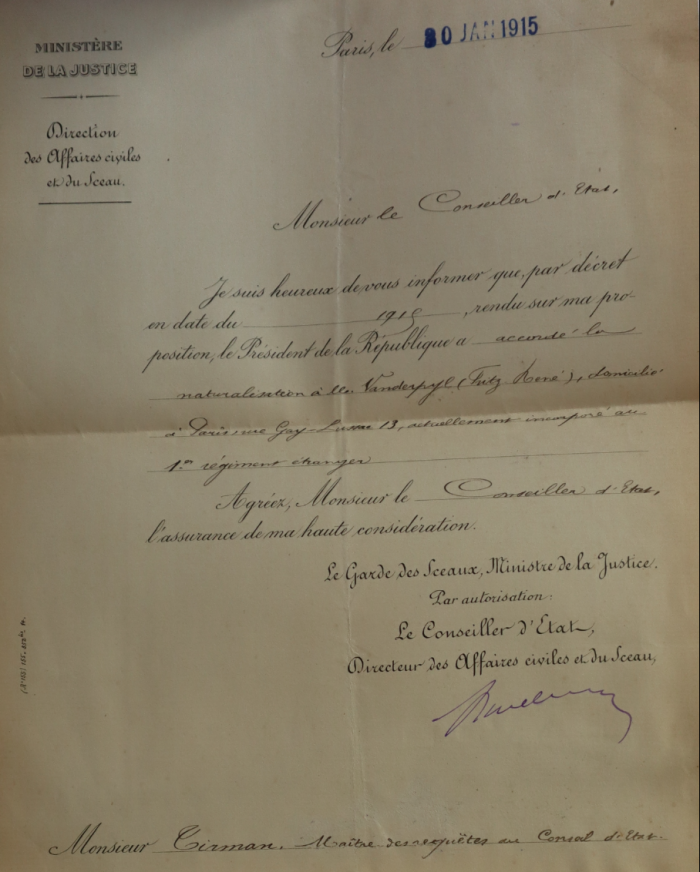 MINISTÈRE
DE LA JUSTICE
Direction
des Affaires civiles
et du Sceau.
Paris, le 30 JAN 1915
Monsieur le Conseiller d'Etat,
Je suis heureux de vous informer que, par décret
en date du 1915, rendu sur ma pro-
position, le Président de la République a accordé la
naturalisation à M. Vanderpyl (Fritz René), domicilié
à Paris rue Gay-Lussac 13, actuellement incorporé au
1er régiment étranger
Agréez, Monsieur le Conseiller d'Etat,
l'assurance de ma haute considération.
Le Garde des Sceaux, Ministre de la Justice.
Par autorisation:
Le Conseiller d'Etat,
Directeur des Affaires civiles et du Sceau,
Monsieur Tirman, Maître des requêtes au Conseil d'Etat.